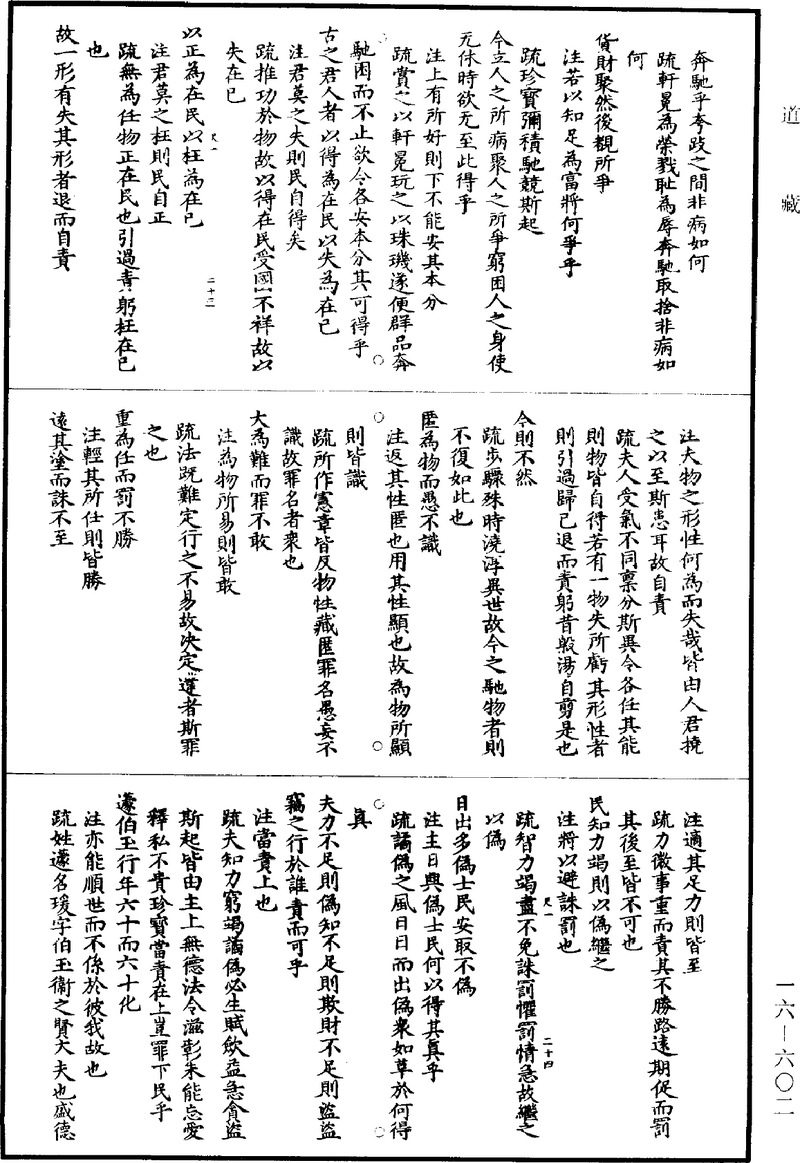 道藏
奔馳乎夸跂之間非病如何
疏軒冕為榮戮恥為辱奔馳取捨非病如
何
貨財聚然後覩所爭
注若以知足為富將何爭乎
疏珍寶彌積馳競斯起
今立人之所病聚人之所爭窮困人之身使
无休時欲无至此得乎
注上有所好則下不能安其本分
疏賞之以軒冕玩之以珠璣遂使群品奔
馳困而不止欲令各安本分其可得乎
古之君人者以得為在民以失為在己
注君莫之失則民自得矣
疏推功於物故以得在民受國不祥故以
失在己
以正為在民以枉為在己
尺一 二十三
注君莫之枉則民自正
疏無為任物正在民也引過責躬枉在己
也
故一形有失其形者退而自責
注夫物之形性何為而失哉皆由人君撓
之以至斯患耳故自責
疏夫人受氣不同稟分斯異令各任其能
則物皆自得若有一物失所虧其形性者
則引過歸己退而責躬昔殷湯自剪是也
今則不然
疏步驟殊時澆淳異世故今之馳物者則
不復如此也
匿為物而愚不識
注返其性匿也用其性顯也故為物所顯
則皆識
疏所作憲章皆反物性藏匿罪名愚妄不
識故罪名者衆也
大為難而罪不敢
注為物所易則皆敢
疏法既難定行之不易故決定違者斯罪
之也
重為任而罰不勝
注輕其所任則皆勝
遠其塗而誅不至
注適其足力則皆至
疏力微事重而責其不勝路遠期促而罰
其後至皆不可也
民知力竭則以偽繼之
注將以避誅罰也
尺一 二十四
疏智力竭盡不免誅罰懼罰情急故繼之
以偽
日出多偽士民安取不偽
注主日興偽士民何以得其真乎
疏譎偽之風日日而出偽衆如草於何得
真
夫力不足則偽知不足則欺財不足則盜盜
竊之行於誰責而可乎
注當責上也
疏夫知力窮竭譎偽必生賦斂益急貪盜
斯起皆由主上無德法令滋彰朱能忘愛
釋私不貴珍寶當責在上豈罪下民乎
蘧伯玉行年六十而六十化
注亦能順世而不係於彼我故也
疏姓蘧名瑗字伯玉衞之賢大夫也盛德
一六—六〇二